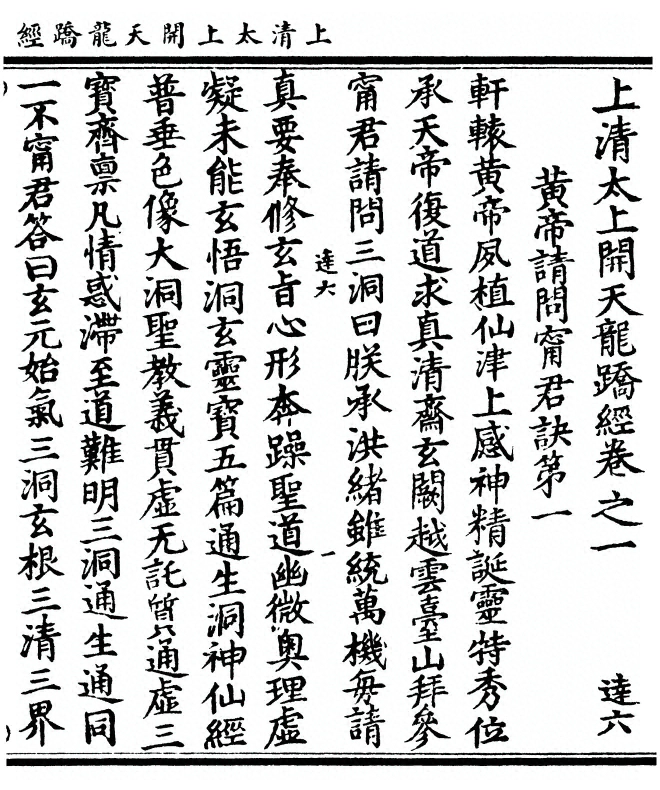 上清太上開天龍蹻經
上清太上開天龍蹻經卷之一 達六
黄帝請問甯君訣第一
軒轅黄帝夙植仙津上感神精誕靈特秀位
承天帝復道求真清齋玄闕越雲臺山拜參
甯君請問三洞曰朕承洪緒雖統萬機每請
達六 一
真要奉修玄旨心形奔躁聖道幽微奥理虚
凝未能玄悟洞玄靈寶五篇通生洞神仙經
普垂色像大洞聖教義貫虚无託質通虚三
寶齊禀凡情惑滯至道難明三洞通生通同
一不甯君答曰玄元始氣三洞玄根三清三界